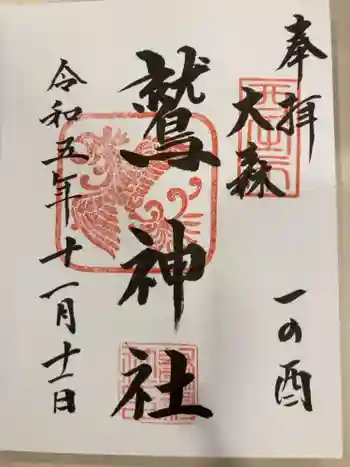 奉拝
一の酉
大森
鷲神社
令和五年十一月十一日